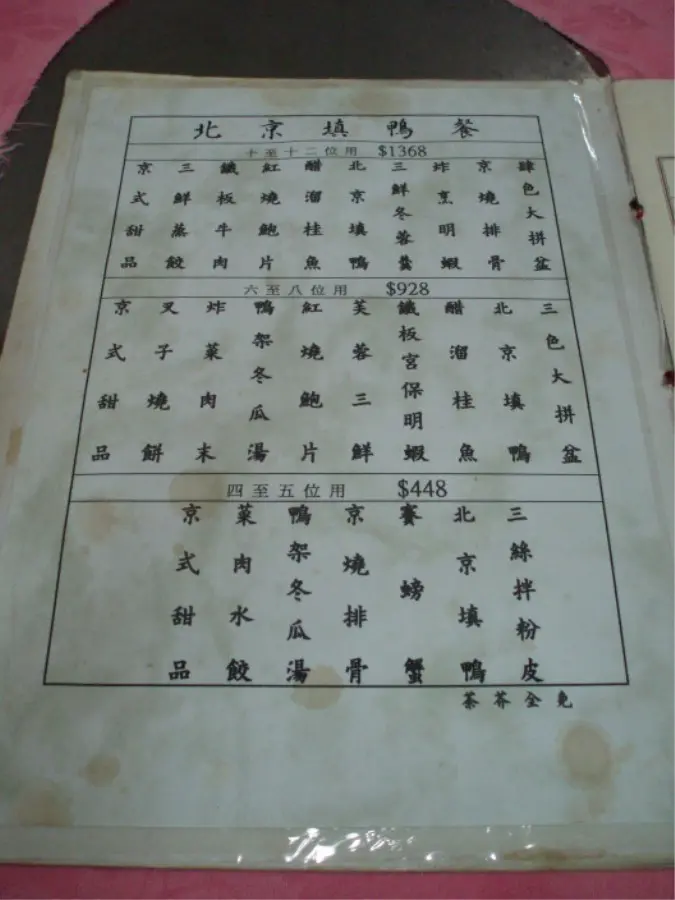 北京填鴨餐
十至十二位用 $1368
肆色大拼盆
京燒排骨
炸烹明蝦
三鮮冬蓉羹
北京填鴨
醋溜桂魚
紅燒鮑片
鐵板牛肉
三鮮蒸餃
京式甜品
六至八位用 $928
三色大拼盆
北京填鴨
醋溜桂魚
鐵板宮保明蝦
芙蓉三鮮
紅燒鮑片
鴨架冬瓜湯
炸菜肉末
叉子燒餅
京式甜品
四至五位用 $448
三絲拌粉皮
北京填鴨
賽螃蟹
京燒排骨
鴨架冬瓜湯
菜肉水餃
京式甜品
茶芥全免